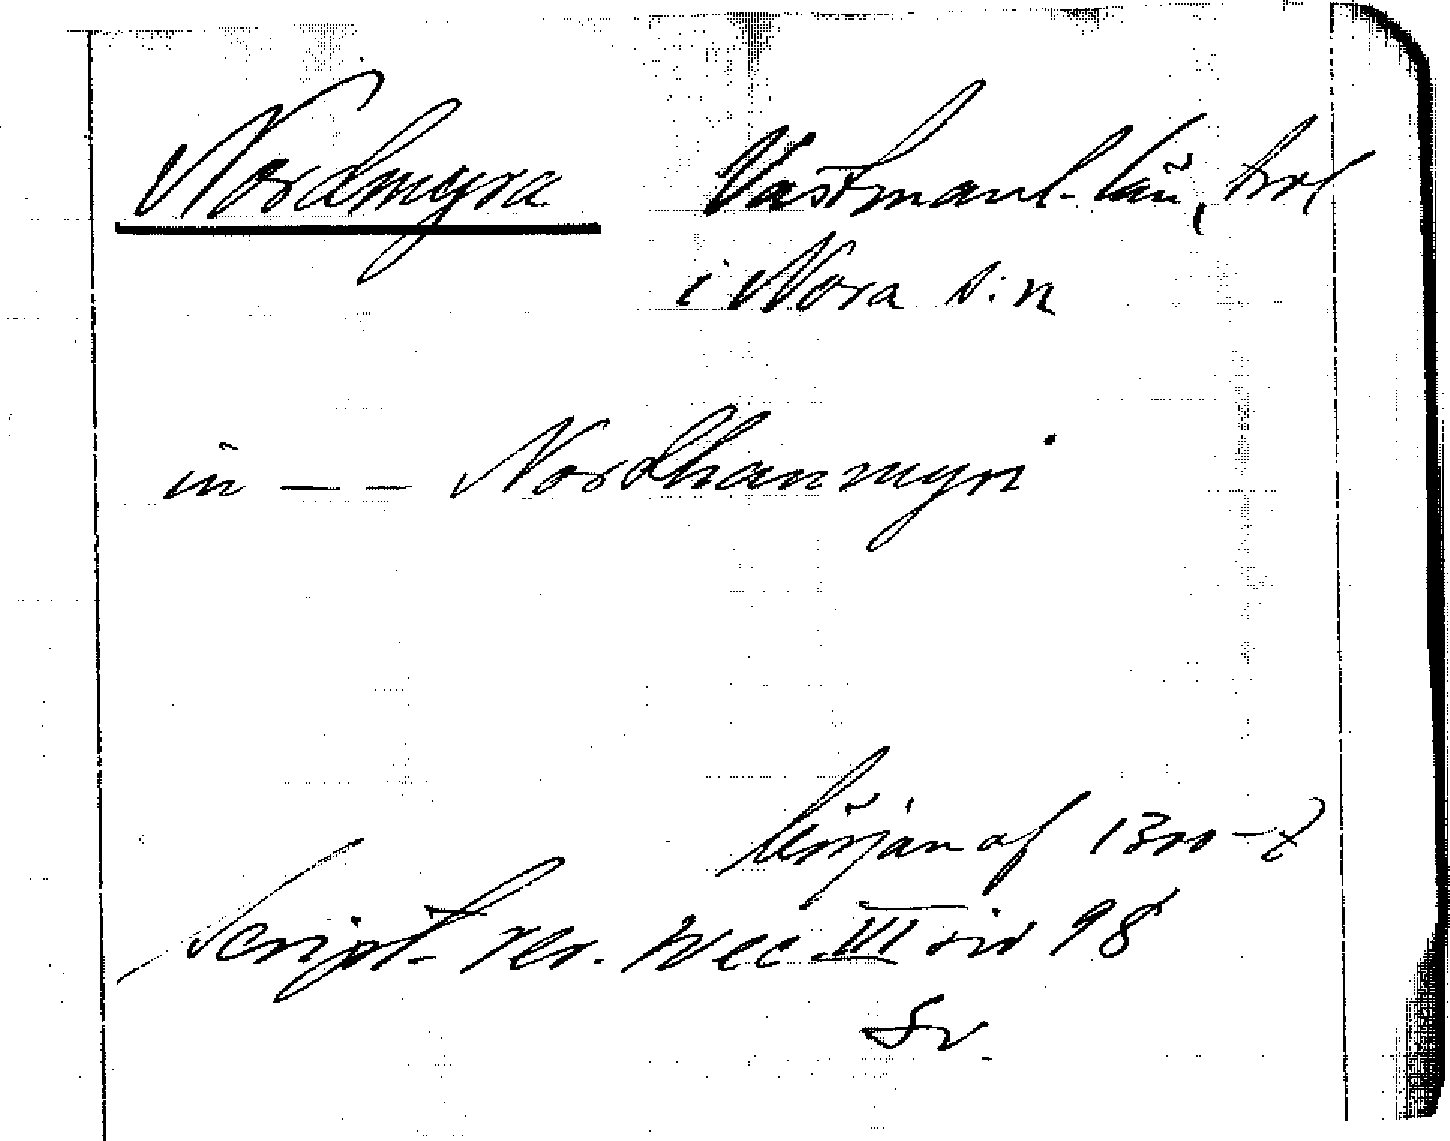 Nordmyra Västmanl. län, trol
i Nora s:n
in — — Nordhanmyri
början af 1300-t
Script. rer. svec III sid 98
Sv.